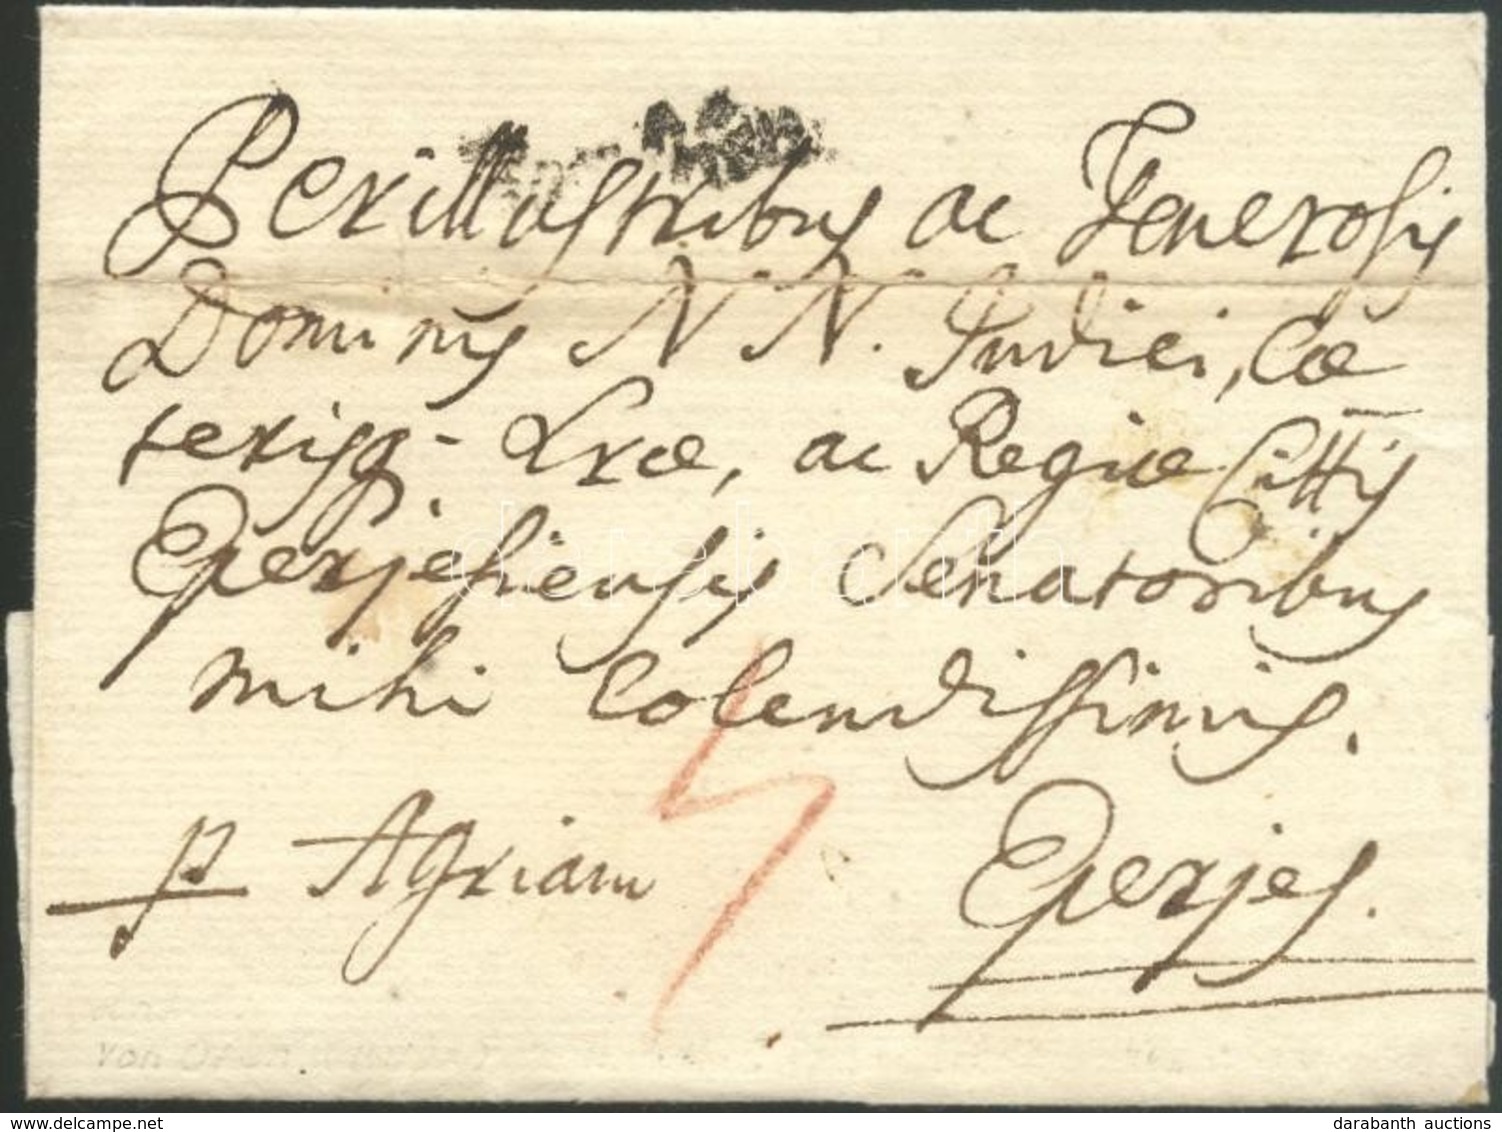 Perillustribus ac Generosis
Dominis N. N. Judici, Cæ
terisq- Lræ, ac Regiæ Cittis
Eperjesiensis Senatoribus
mihi Colendissimis.
p Agriam
Eperjes.
von Ofen
darabanth
delcampe.net
darabanth auctions